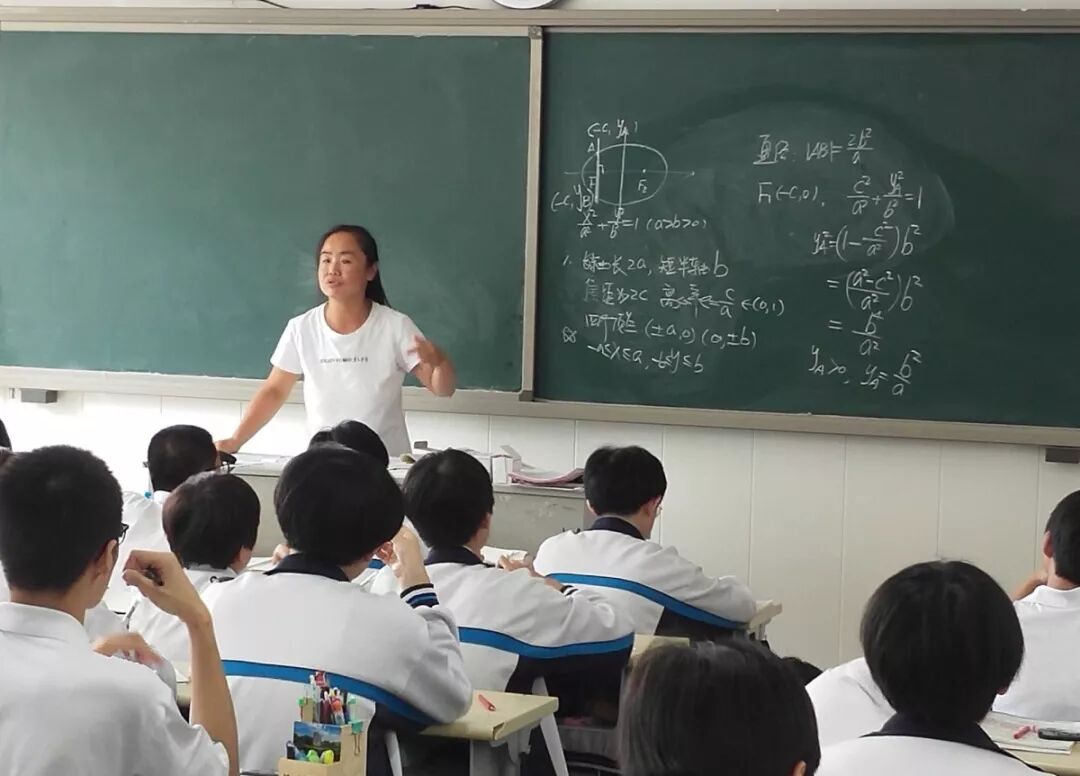 (-c, yA)
A
F₂
(-c, yB)
x²/a² + y²/b² = 1 (a>b>0)
1. 长轴长2a, 短半轴b
焦距为2c 离心率 c/a ∈(0,1)
四个顶点 (±a,0) (0,±b)
-a≤x≤a, -b≤y≤b
通径: |AB|= 2b²/a
F₁(-c,0), c²/a² + yA²/b² = 1
yA² = (1 - c²/a²)b²
= (a²-c²/a²)b²
= b⁴/a²
yA>0, yA = b²/a